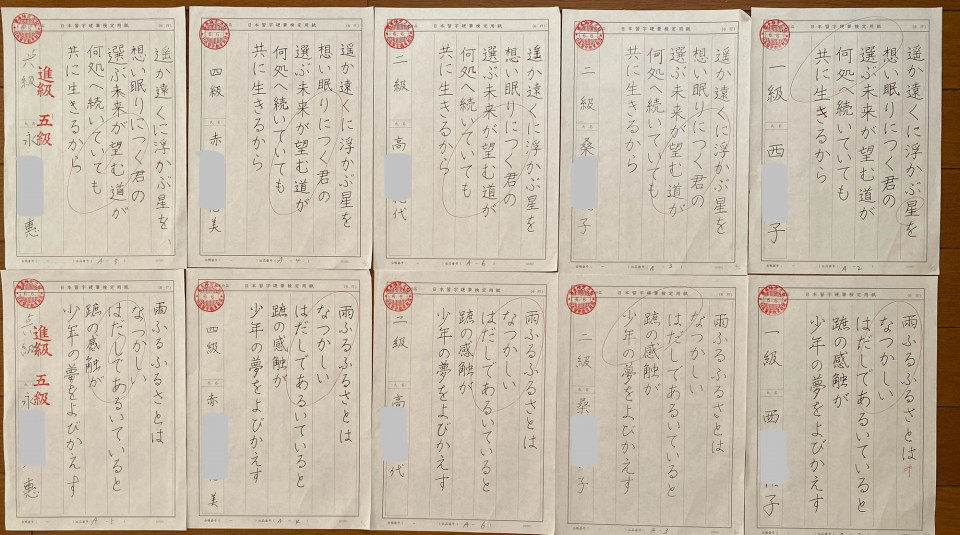 日本習字硬筆検定用紙
遥か遠くに浮かぶ星を
想い眠りにつく君の
選ぶ未来が望む道が
何処へ続いていても
共に生きるから
進級 五級
級
永
恵
日本習字硬筆検定用紙
遥か遠くに浮かぶ星を
想い眠りにつく君の
選ぶ未来が望む道が
何処へ続いていても
共に生きるから
四級
赤
美
A-4
日本習字硬筆検定用紙
遥か遠くに浮かぶ星を
想い眠りにつく君の
選ぶ未来が望む道が
何処へ続いていても
共に生きるから
二級
高
代
A-6
日本習字硬筆検定用紙
遥か遠くに浮かぶ星を
想い眠りにつく君の
選ぶ未来が望む道が
何処へ続いていても
共に生きるから
二級
桑
子
A-3
日本習字硬筆検定用紙
遥か遠くに浮かぶ星を
想い眠りにつく君の
選ぶ未来が望む道が
何処へ続いていても
共に生きるから
一級
西
子
A-2
日本習字硬筆検定用紙
雨ふるふるさとは
なつかしい
はだしであるいていると
蹠の感触が
少年の夢をよびかえす
進級 五級
級
永
恵
A-5
日本習字硬筆検定用紙
雨ふるふるさとは
なつかしい
はだしであるいていると
蹠の感触が
少年の夢をよびかえす
四級
赤
美
A-4
日本習字硬筆検定用紙
雨ふるふるさとは
なつかしい
はだしであるいていると
蹠の感触が
少年の夢をよびかえす
二級
高
代
A-6
日本習字硬筆検定用紙
雨ふるふるさとは
なつかしい
はだしであるいていると
蹠の感触が
少年の夢をよびかえす
二級
桑
子
A-3
日本習字硬筆検定用紙
雨ふるふるさとは
なつかしい
はだしであるいていると
蹠の感触が
少年の夢をよびかえす
一級
西
子